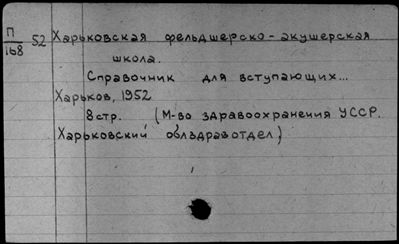 П
168
52 Харьковская фельдшерско-акушерская
школа.
Справочник для вступающих...
Харьков, 1952
8 стр. (М-во здравоохранения УССР.
Харьковский облздравотдел)